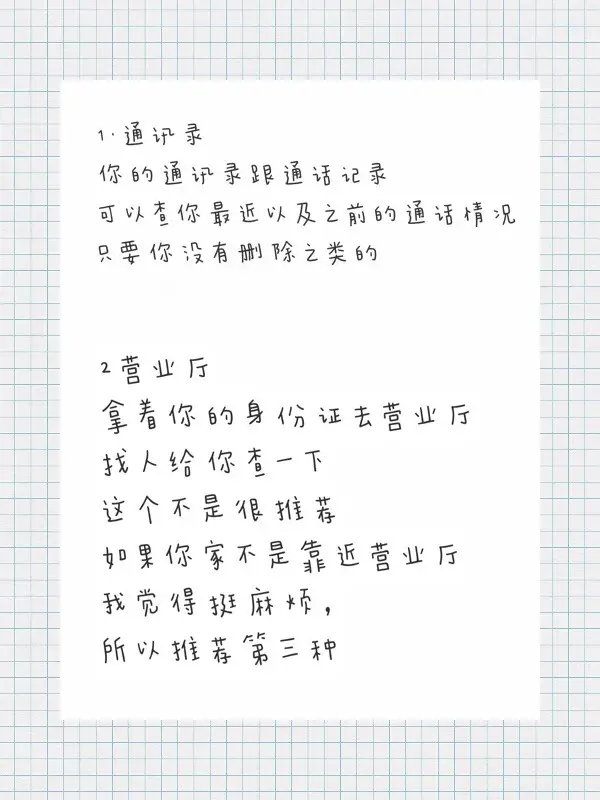 1.通讯录
你的通讯录跟通话记录
可以查你最近以及之前的通话情况
只要你没有删除之类的
2营业厅
拿着你的身份证去营业厅
找人给你查一下
这个不是很推荐
如果你家不是靠近营业厅
我觉得挺麻烦，
所以推荐第三种